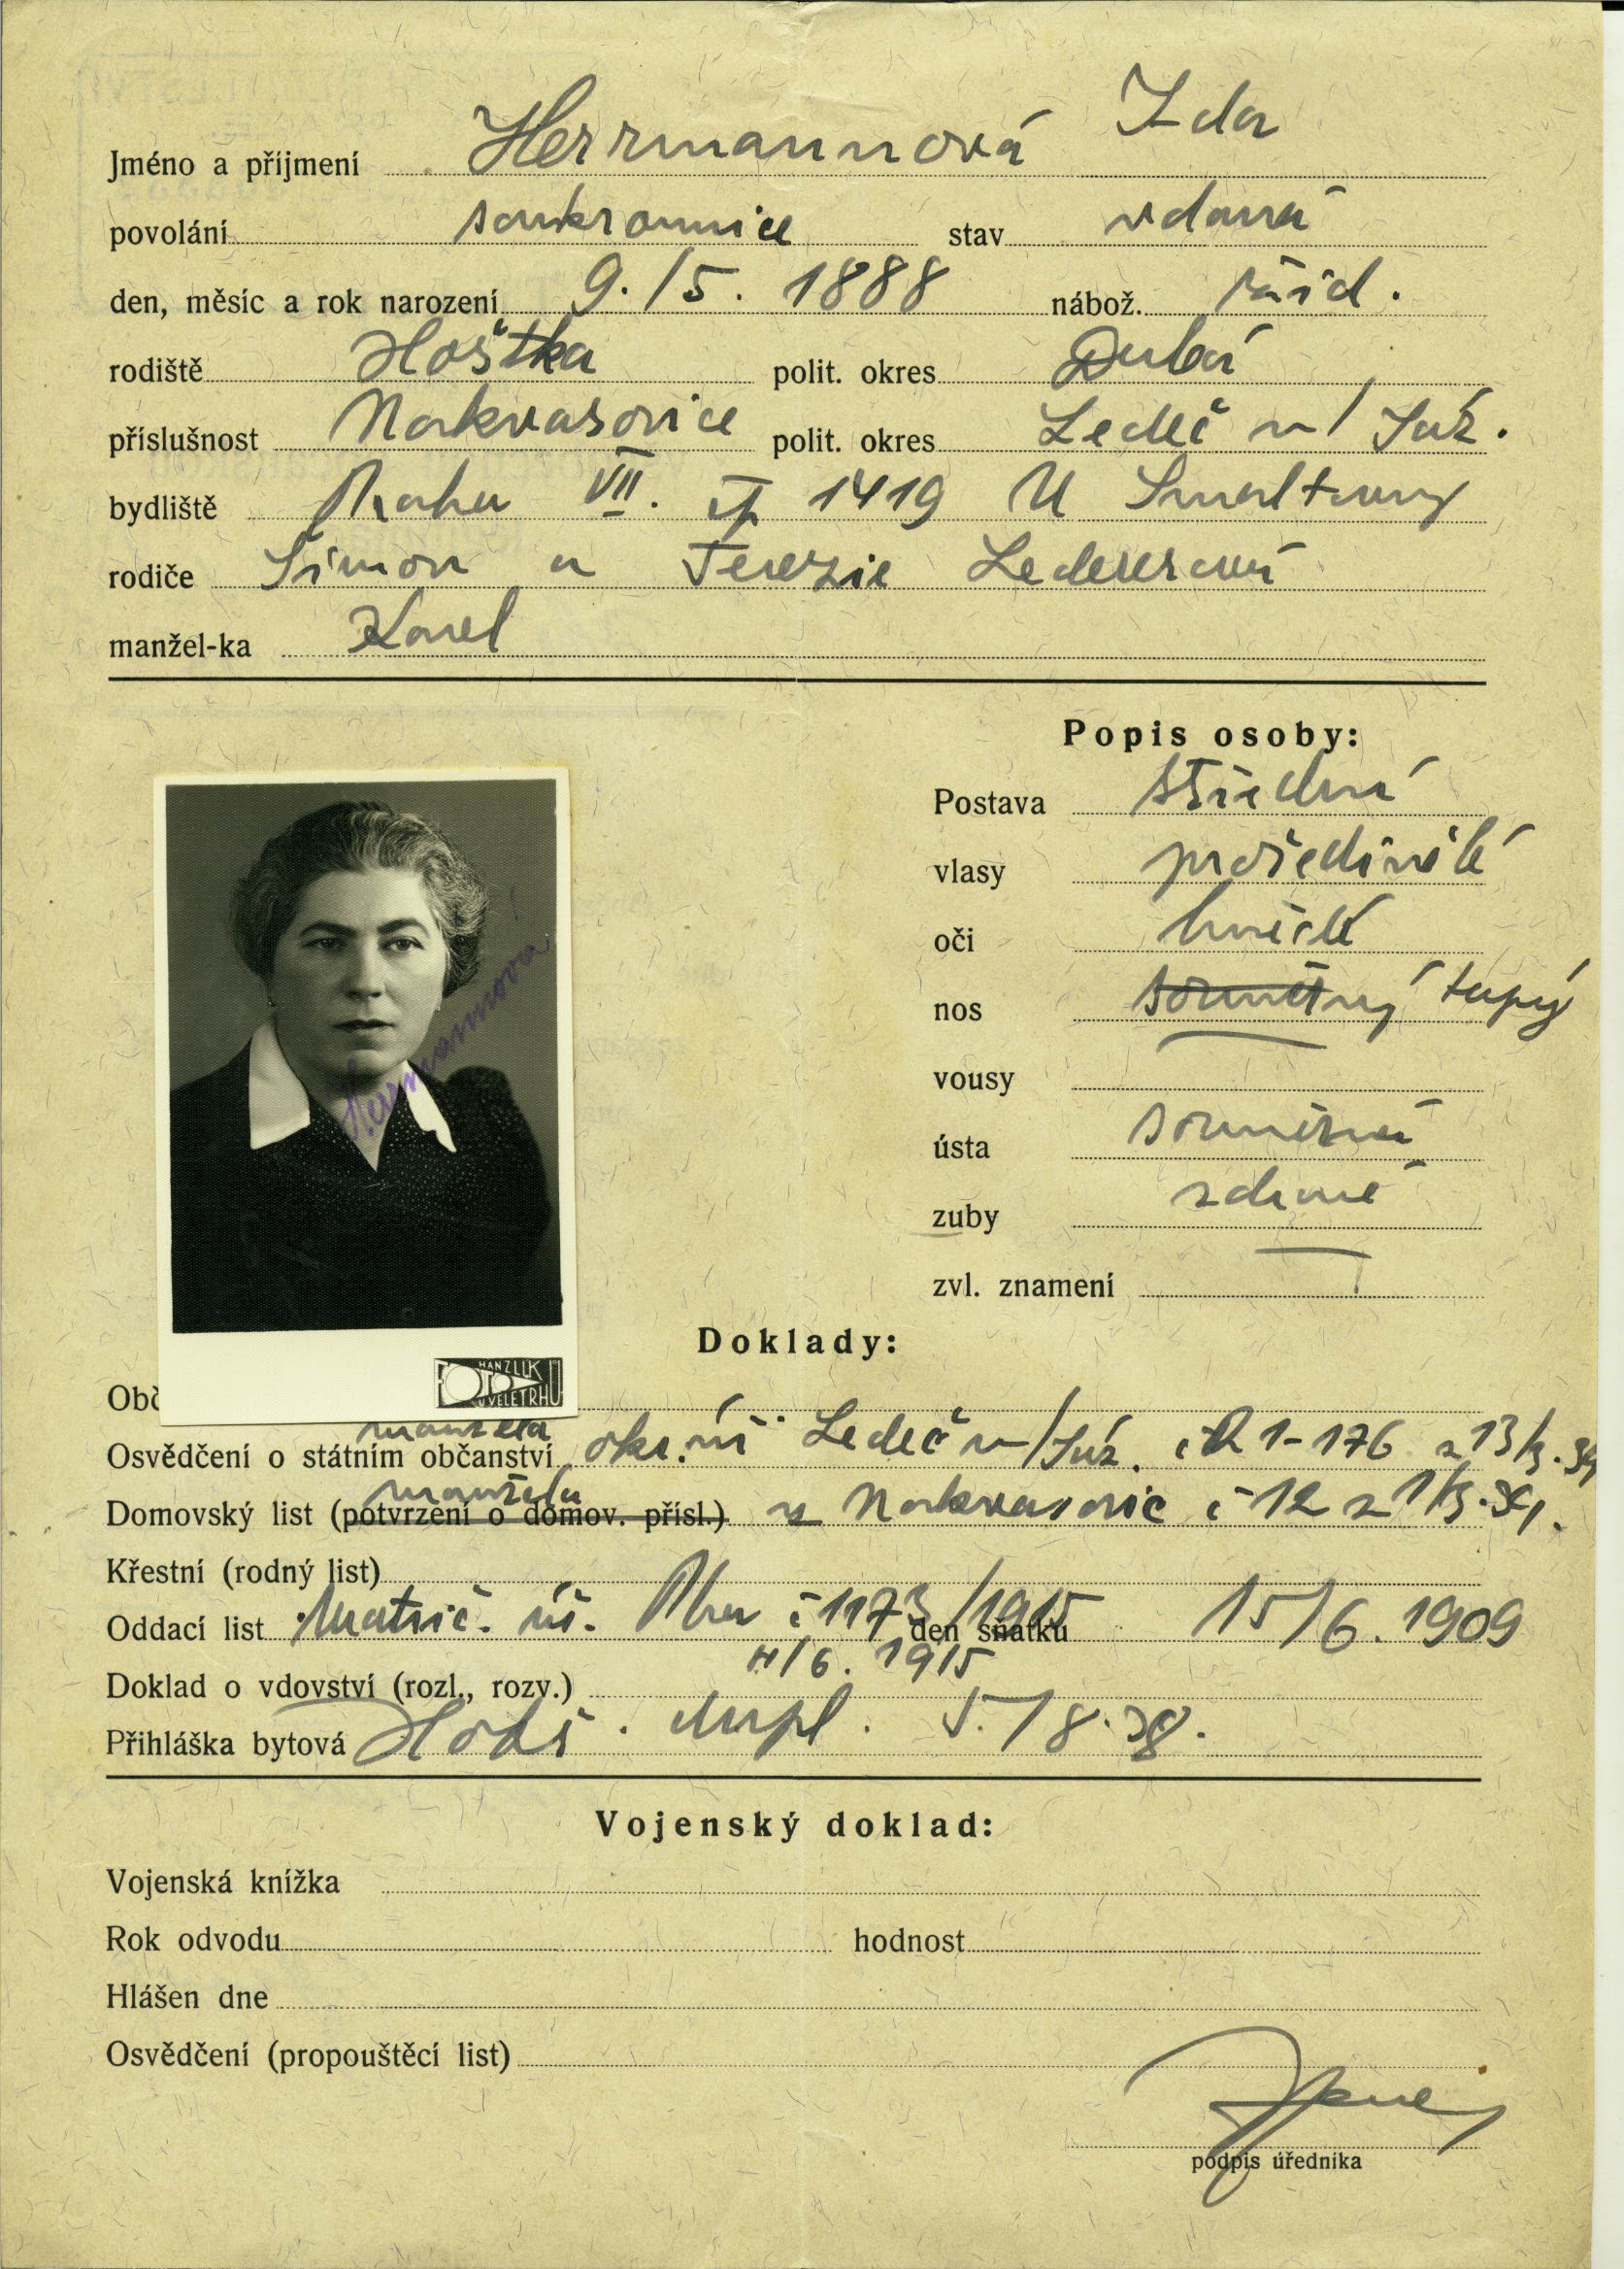 Jméno a příjmení Herrmannová Ida
povolání soukromnice stav vdaná
den, měsíc a rok narození 9./5. 1888 nábož. žid.
rodiště Hoštka polit. okres Dubá
příslušnost Nakvasovice polit. okres Ledeč n/ Sáz.
bydliště Praha VII. čp 1419 U Smaltovny
rodiče Šimon a Terezie Ledererová
manžel-ka Karel
Popis osoby:
Postava střední
vlasy prošedivělé
oči hnědé
nos souměrný tupý
vousy
ústa souměrná
zuby zdravé
zvl. znamení
Herrmannová
HANZLÍK
FOTO
U VELETRHŮ
Doklady:
Obč
manžela
Osvědčení o státním občanství okr. úř. Ledeč n/Sáz. č 1-176 z 13/3.
manžela
Domovský list (potvrzení o domov. přísl.) Nakvasovic č 12 z 1/3.
Křestní (rodný list)
Oddací list Matrič. úř. Pha č 1173/1915 den sňatku 15/6. 1909
/6. 1915
Doklad o vdovství (rozl., rozv.)
Přihláška bytová Hol. dupl. 5./8.38.
Vojenský doklad:
Vojenská knížka
Rok odvodu hodnost
Hlášen dne
Osvědčení (propouštěcí list)
podpis úředníka